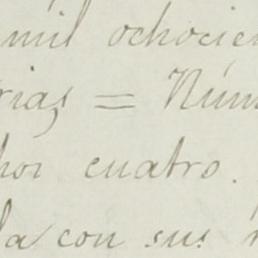 mil ochocien
rias = Núm
hoi cuatro.
la con sus